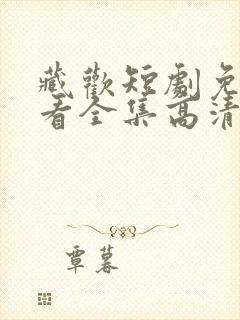 藏歡短劇免
看全集高清
覃暮